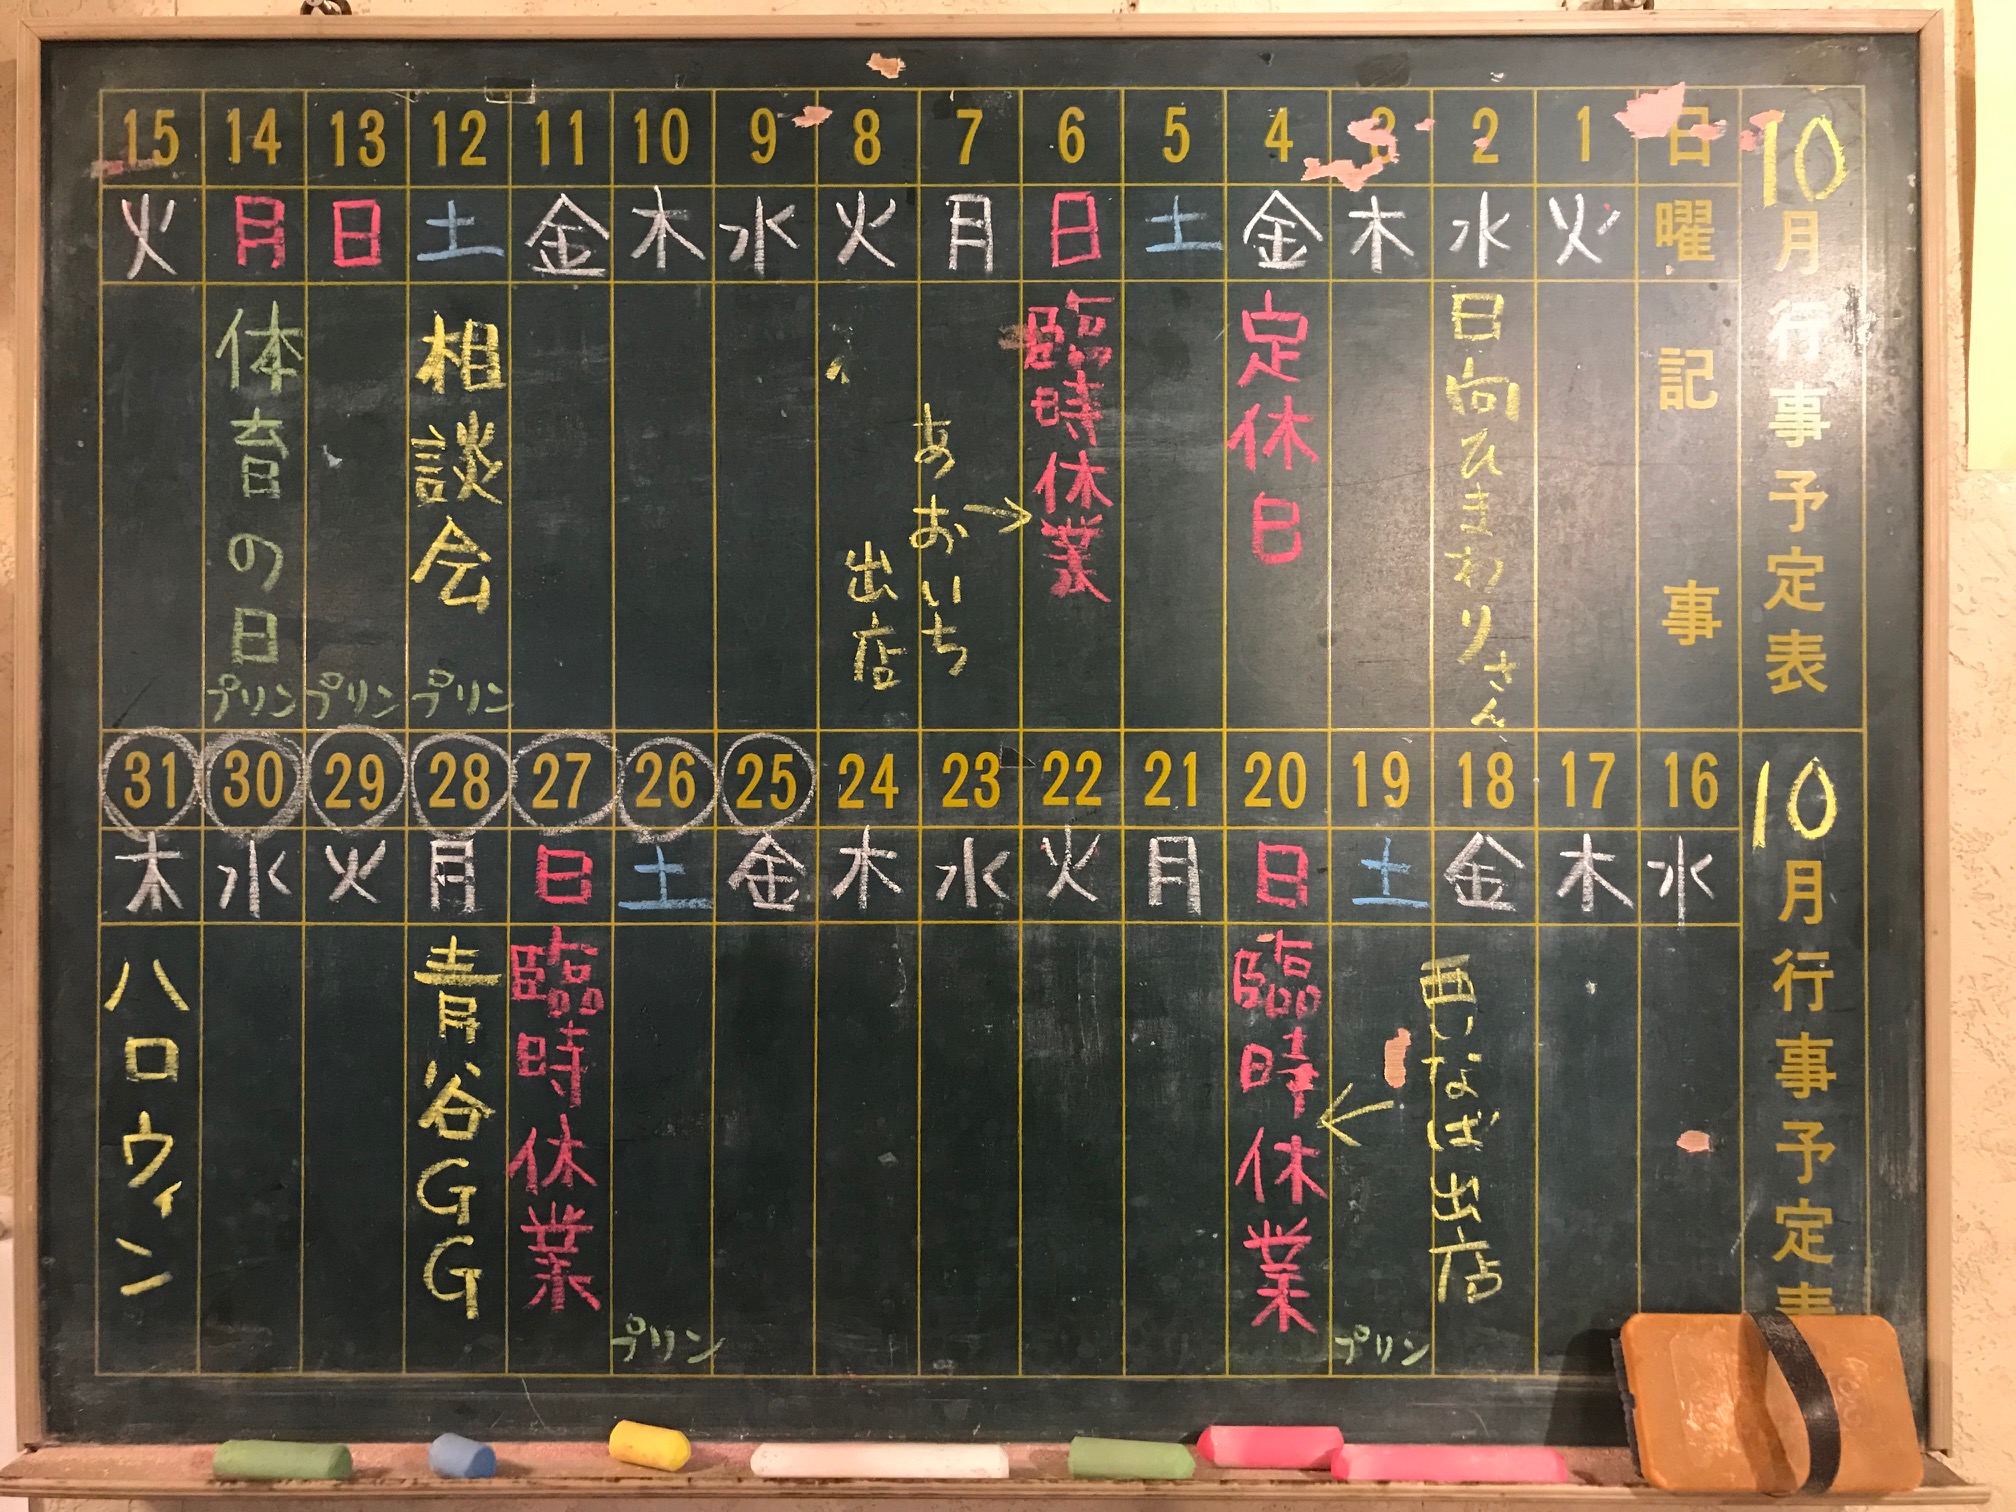 10月行事予定表
日 1 2 3 4 5 6 7 8 9 10 11 12 13 14 15
曜 火 水 木 金 土 日 月 火 水 木 金 土 日 月 火
記事
日向ひまわりさん
定休日
臨時休業
あおいち
出店
相談会
プリン
プリン
体育の日
プリン
10月行事予定表
16 17 18 19 20 21 22 23 24 25 26 27 28 29 30 31
水 木 金 土 日 月 火 水 木 金 土 日 月 火 水 木
西いなば出店
プリン
臨時休業
プリン
臨時休業
青谷GG
ハロウィン